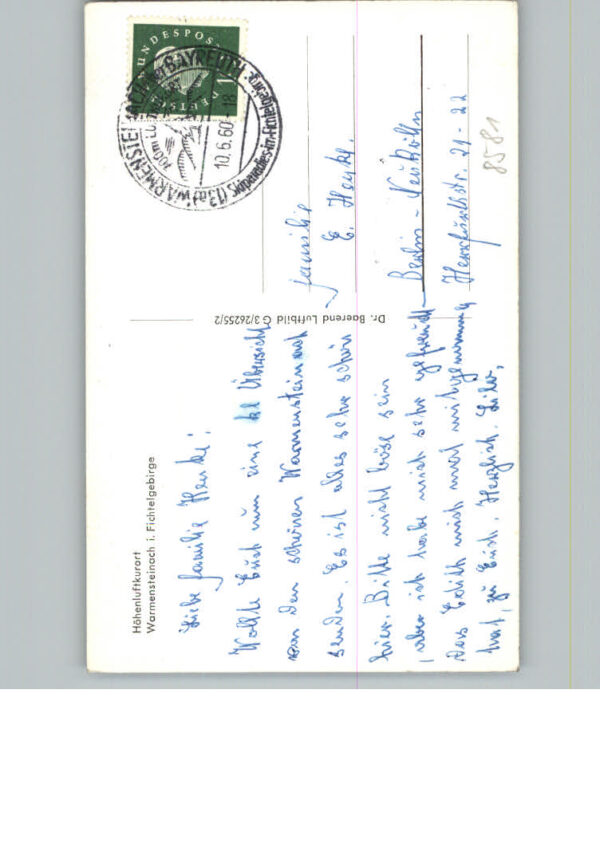 Höhenluftkurort
Warmensteinach i. Fichtelgebirge
Liebe Familie Henke!
Wollte Euch nun eine kl Übersicht
von den schönen Warmensteinach
senden. Es ist alles sehr schön
hier. Bitte nicht böse sein
aber ich habe mich sehr gefreut
das Edith mich mal mitgenommen
hat, zu Euch. Herzlich.
Dr. Baerend Luftbild G 3/26255/2
DEUTSCHE BUNDESPOST
(13a) WARMENSTEINACH BAYREUTH
10.6.60-18
Skiparadies im Fichtelgebirge
Familie
E. Henke
Berlin - Neukölln
Herrfurthstr. 21-22
8581